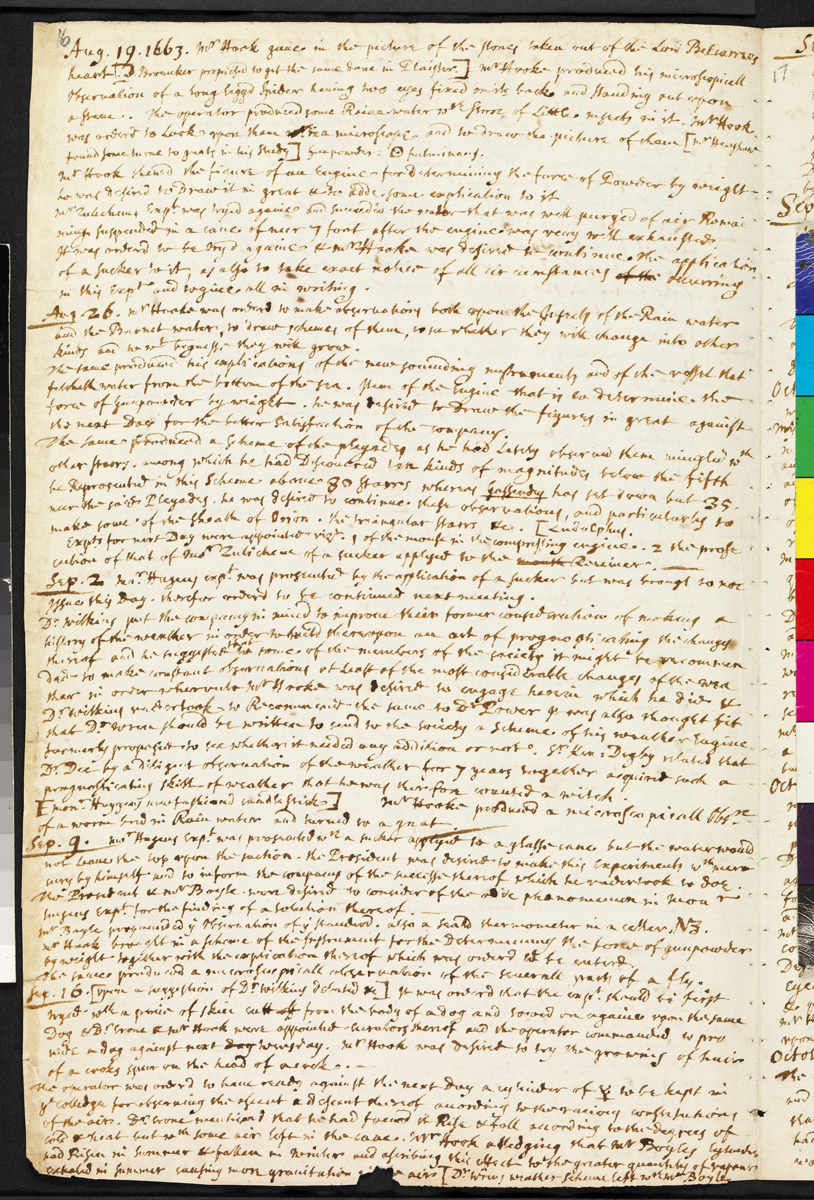 16
Aug. 19. 1663. Mr Hook gave in the picture of the stones taken out of the Lord Belcarres
heart [Ld Brouncker propounded to get the same done in Plaister.] Mr Hooke produced his microscopicall
Observation of a long leggd Spider having two eyes fixed on its back and standing out upon
a stem.. The operator produced some Raine water wth store of Little insects in it. Mr Hook
was orderd to Look upon them in a microscope and to draw the picture of them [Mr Henshaw
found some turne to gnats in his study] Gunpowder. fulminans.
Mr Hook shewd the figure of an Engine for determining the force of Powder by weight
he was desired to draw it in great & to adde some explication to it
Mr Zulichems Expt was tryd againe and succeeded the water that was well purged of air Remai
ning suspended in a cane of neer 7 foot after the engine was very well exhausted.
It was orderd to be tryd againe & Mr Hooke was desired to continue the application
of a sucker to it, as also to take exact notice of all circumstances of the occurring
in this Expt and to give all in writing.
Aug. 26. Mr Hooke was orderd to make observations both upon the Insects of the Rain water
and the Barnet water, to draw schemes of them, to see whether they will change into other
kinds and to wt bignesse they will grow.
The same produced his explications of the new sounding instruments and of the vessel that
fetcheth water from the bottom of the sea. Item of the Engine that is to determine the
force of Gunpowder by weight. he was desired to Draw the figures in great against
the next Day for the better satisfaction of the company.
The same produced a Scheme of the pleyades as he had Lately observed them mingled wth
other starrs. among which he had Discovered kinds of magnitudes below the fifth
he Represented in this Scheme above 80 starrs whereas Gassendy has set down but 35.
neer the said Pleyades. he was desired to continue these observations, and particularly to
make some of the sheath of Orion. the triangular starrs &c. [Ludolphus.
Expts for next Day were appointed vizt. 1 of the mouse in the compressing engine. 2 the prose
cution of that of Monr Zulichem of a sucker applyed to the mouth Receiver.
Sep. 2 Monr Hugens expt. was prosecuted by the application of a sucker but was brought to noe
issue this Day. therfor orderd to be continued next meeting.
Dr Wilkins put the company in mind to improve their former consideration of making a
history of the weather in order to build thereupon an art of prognosticating the changes
thereof and he suggested to some of the members of the society it might be recommen
ded to make constant observations at Least of the most considerable changes of the wea
ther in order whereunto Mr Hooke was desired to engage herein which he did &
Dr Wilkins undertook to Recommend the same to Dr Power it was also thought fit
that Dr Wren should be written to send to the society a Scheme of his weather Engine
formerly proposed to see whether it needed any addition or not. Sr Ken: Digby related that
Dr Dee by a diligent observation of the weather for 7 years together acquired such a
prognosticating skill of weather that he was therefore counted a witch.
[Monr Hugens new fashiond candlestick] Mr Hooke produced a microscopicall Obsne
of a worm bred in Rain water and turned to a gnat
Sep. 9. Monr Hugens Expt was prosecuted wth a sucker applyd to a glasse cane but the water would
not Leave the top upon the suction. the President was desired to make this Experiments wth mer
cury by himself and to inform the company of the successe thereof which he undertook to doe.
the President & Mr Boyle were desired to consider of the odde phenomenon in Monr
Hugens Expt for the finding of a solution thereof.
Mr Boyle propounded ye observation of ye standard. also a seald thermometer in a cellar. NB.
Mr Hook brought in a scheme of the Instrument for the Determining the force of gunpowder
by weight together with the explication thereof which was orderd to be enterd.
the same produced a microscopicall observation of the severall parts of a fly.
Sep. 16. [upon a suggestion of Dr Wilkins debated &c] It was orderd that the expt should be first
tryed with a peice of skin cutt off from the body of a dog and sowed on againe upon the same
Dog & Dr Crone & Mr Hook were appointed curators thereof and the operator commanded to pro
vide a dog against next day wensday. Mr Hook was desired to try the growing of hair
of a cocks spur on the head of a cock.
the operator was orderd to have ready against the next Day a cylinder of ☿ to be kept in
ye colledge for observing the ascent & descent thereof according to the various constitutions
of the air. Dr Crone mentioned that he had found it Rise & fall according to the degrees of
cold & heat but wth some air left in the cane. Mr Hook alledging that Mr Boyles cylinder
had Risen in summer & fallen in winter and ascribing this effect to the greater quantity of vapours
exhaled in summer causing more gravitation of the aire [Dr Wrens weather scheme left wth Mr Boyle
17